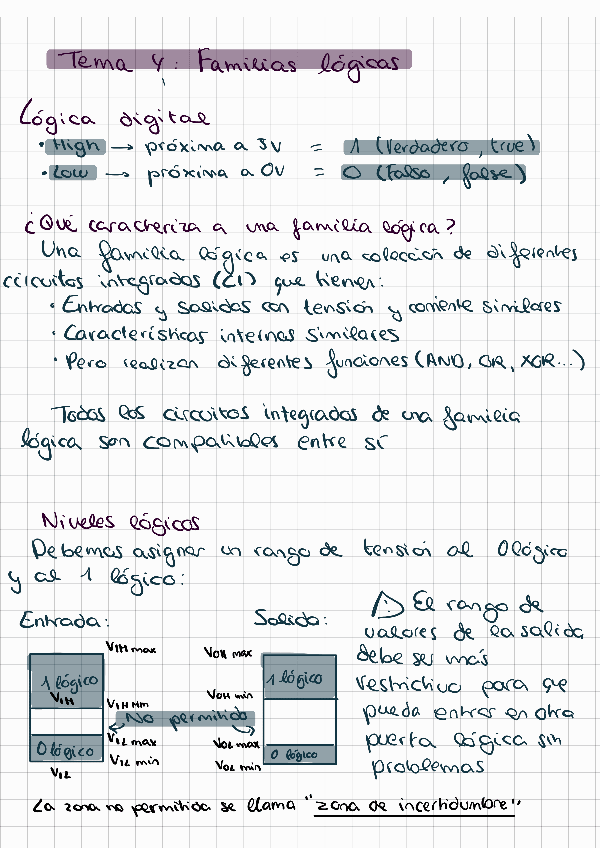 Tema 4: Familias lógicas
Lógica digital
· High → próxima a 5V = 1 (Verdadero, true)
· Low → próxima a 0V = 0 (Falso, false)
¿Qué caracteriza a una familia lógica?
Una familia lógica es una colección de diferentes
circuitos integrados (CI) que tienen:
· Entradas y salidas con tensión y corriente similares
· Características internas similares
· Pero realizan diferentes funciones (AND, OR, XOR...)
Todos los circuitos integrados de una familia
lógica son compatibles entre sí
Niveles lógicos
Debemos asignar un rango de tensión al 0 lógico
y al 1 lógico:
Entrada:
VIH max
1 lógico
VIH
VIH min
No permitido
0 lógico
VIL max
VIL min
VIL
Salida:
VOH max
1 lógico
VOH min
VOL max
0 lógico
VOL min
⚠ El rango de
valores de la salida
debe ser más
restrictivo para que
pueda entrar en otra
puerta lógica sin
problemas
La zona no permitida se llama "zona de incertidumbre"